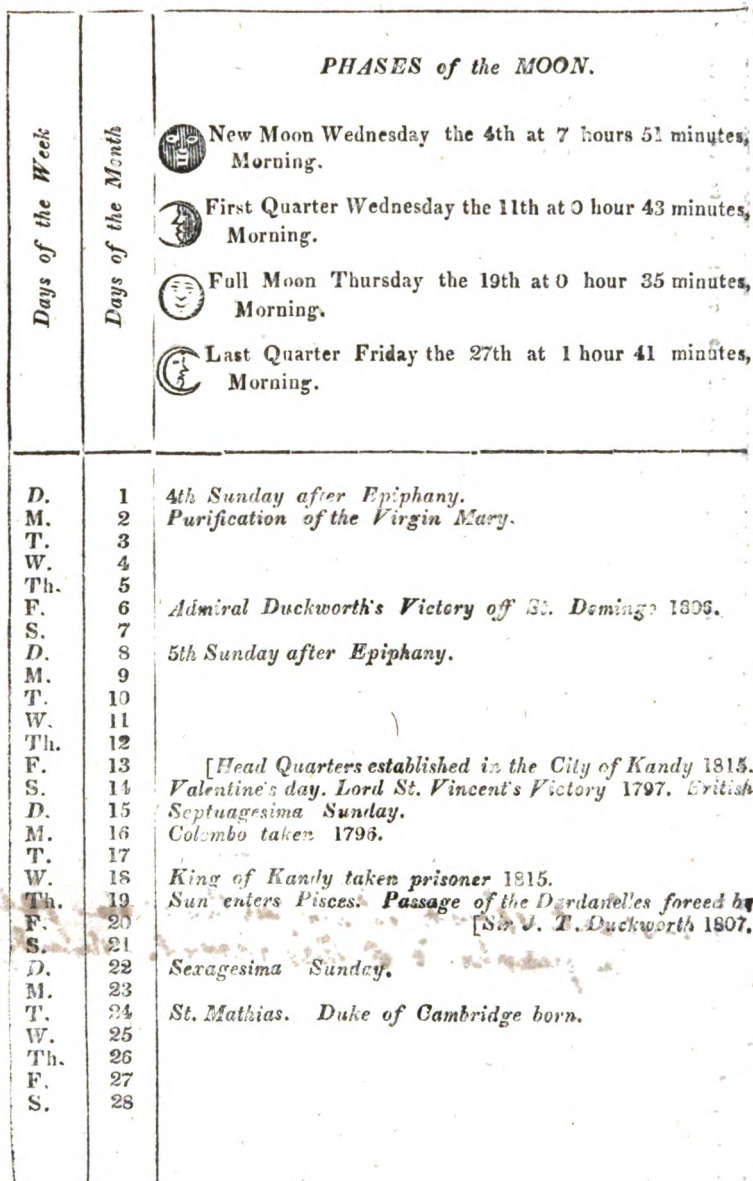 PHASES of the MOON.
Days of the Week
Days of the Month
New Moon Wednesday the 4th at 7 hours 51 minutes,
Morning.
First Quarter Wednesday the 11th at 0 hour 43 minutes,
Morning.
Full Moon Thursday the 19th at 0 hour 35 minutes,
Morning.
Last Quarter Friday the 27th at 1 hour 41 minutes,
Morning.
D. 1 4th Sunday after Epiphany.
M. 2 Purification of the Virgin Mary.
T. 3
W. 4
Th. 5
F. 6 Admiral Duckworth's Victory off St. Domingo 1806.
S. 7
D. 8 5th Sunday after Epiphany.
M. 9
T. 10
W. 11
Th. 12
F. 13 [Head Quarters established in the City of Kandy 1815.
S. 14 Valentine's day. Lord St. Vincent's Victory 1797. British
D. 15 Septuagesima Sunday.
M. 16 Colombo taken 1796.
T. 17
W. 18 King of Kandy taken prisoner 1815.
Th. 19 Sun enters Pisces. Passage of the Dardanelles foreed by
F. 20 [Sir J. T. Duckworth 1807.
S. 21
D. 22 Sexagesima Sunday.
M. 23
T. 24 St. Mathias. Duke of Cambridge born.
W. 25
Th. 26
F. 27
S. 28